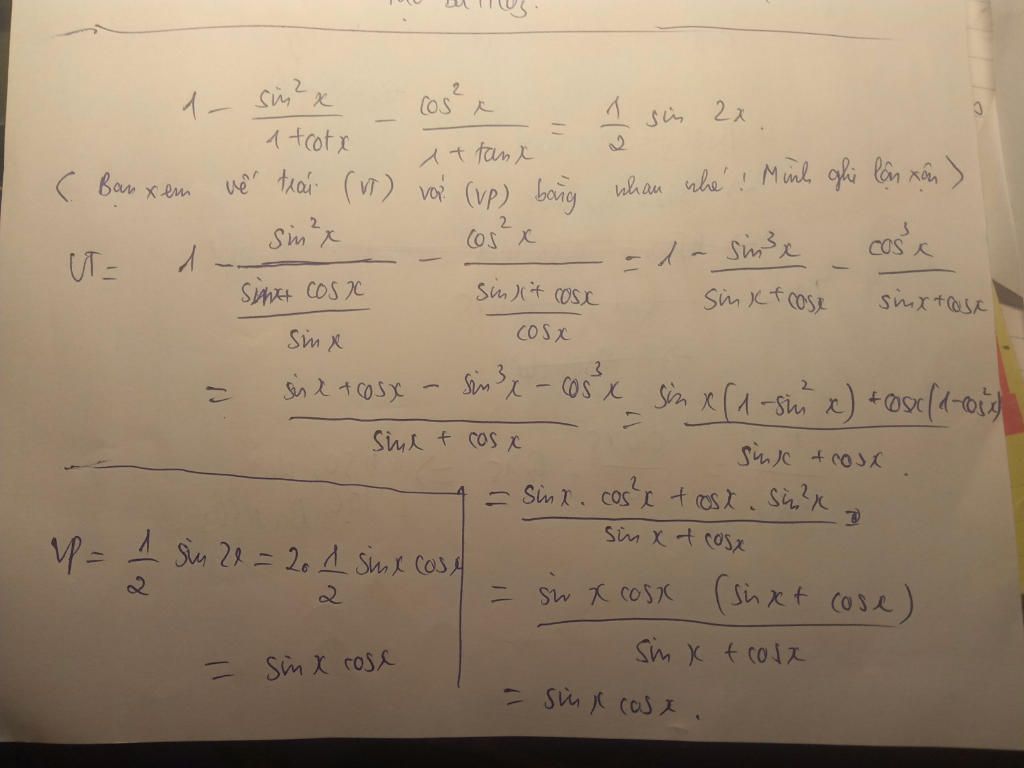 1 - sin²x/(1+cotx) - cos²x/(1+tanx) = 1/2 sin 2x.
( Bạn xem vế trái (VT) và (VP) bằng nhau nhé! Mình ghi lộn xộn )
VT = 1 - sin²x/((sinx+cosx)/sinx) - cos²x/((sinx+cosx)/cosx) = 1 - sin³x/(sinx+cosx) - cos³x/(sinx+cosx)
= (sinx+cosx - sin³x - cos³x)/(sinx + cosx) = (sin x(1-sin²x) + cosx(1-cos²x))/(sinx + cosx).
= (sinx . cos²x + cosx . sin²x)/(sinx + cosx)
= (sin x cosx (sinx + cosx))/(sin x + cosx)
= sinx cosx.
VP = 1/2 sin 2x = 2.1/2 sinx cosx
= sinx cosx